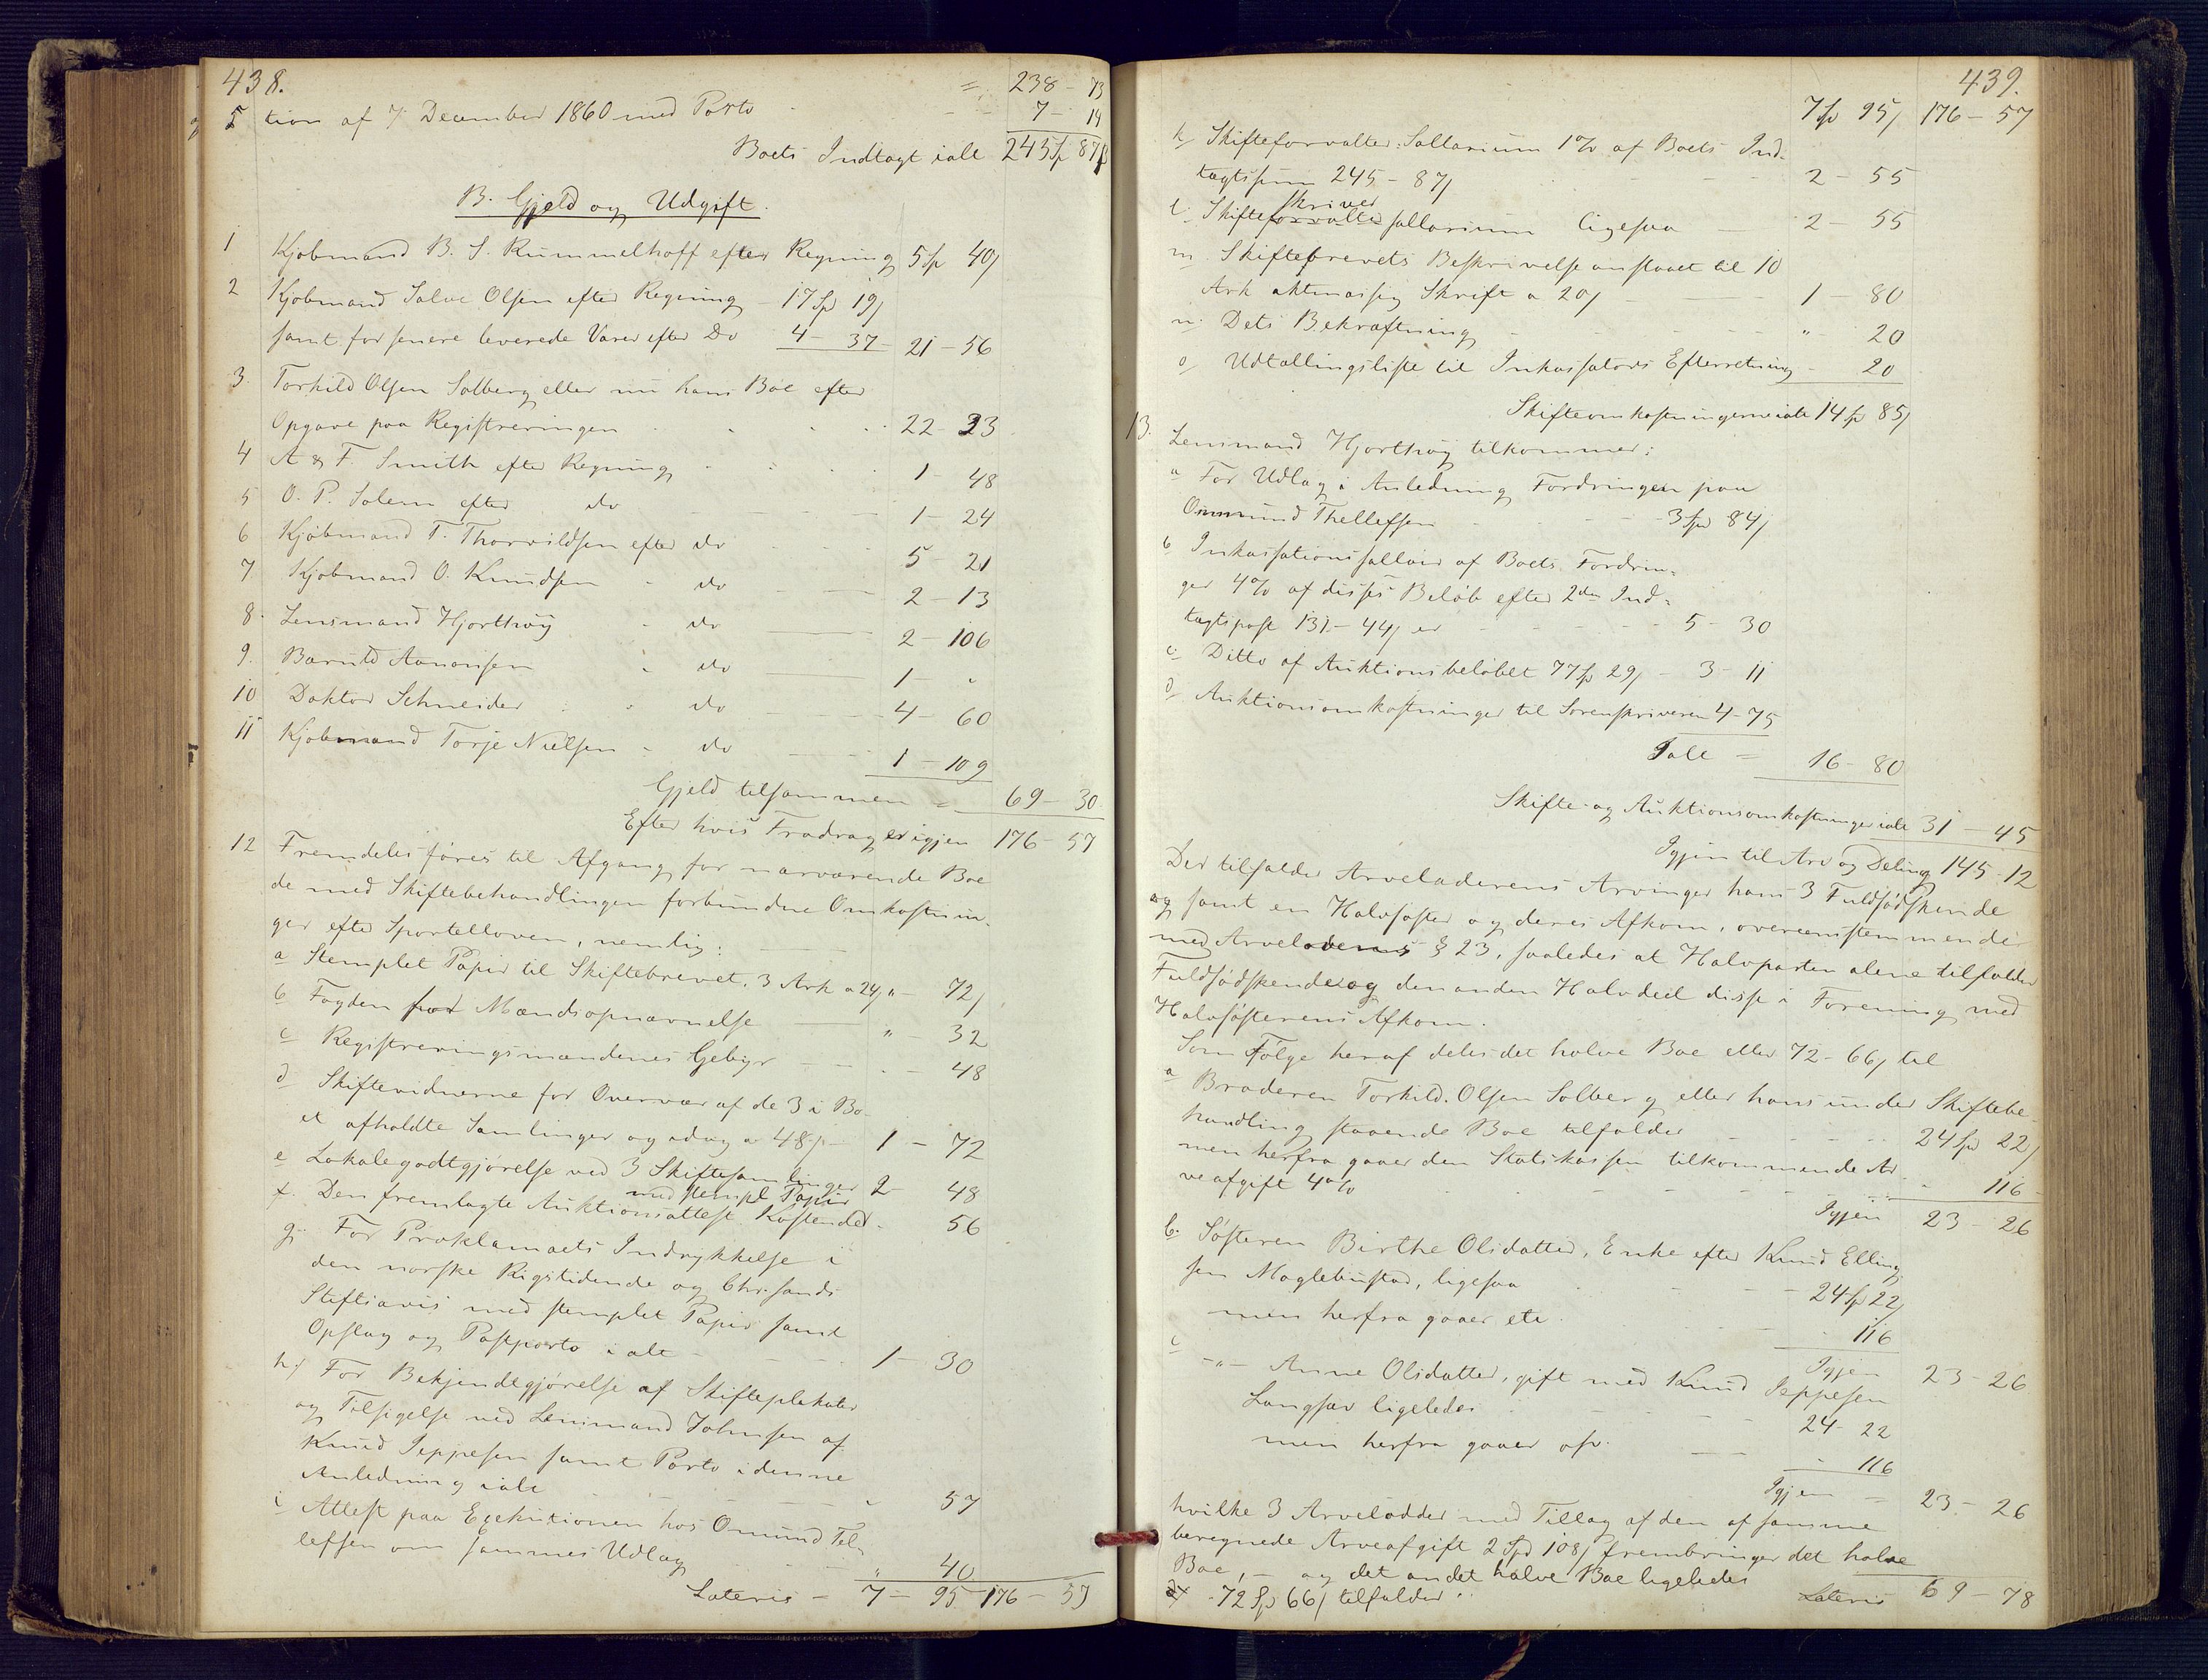 438.
= 238 - 73
5 tion af 7 December 1860 med Porto - - 7 - 14
Boets Indtægt ialt 245 Sp 87 ß
B. Gjeld og Udgift.
1 Kjøbmand B. S. Rummelhoff efter Regning 5 Sp 40 ß
2 Kjøbmand Salve Olsen efter Regning - 17 Sp 19 ß
samt for senere leverede Varer efter Do 4 - 37 - 21 - 56
3. Torkild Olsen Solberg eller nu hans Boe efter
Opgave paa Registreringen - - - 22 - 23
4 A & F. Smith efter Regning - - - 1 - 48
5 O. P. Solem efter do - - - 1 - 24
6 Kjøbmand T. Thorvildsen efter do - - - 5 - 21
7 Kjøbmand O. Knudsen - do - - 2 - 13
8. Lensmand Hjorthøy - do - 2 - 106
9. Barntd Aanonsen - do - 1 - "
10 Doktor Schneider - do - 4 - 60
11 Kjøbmand Torje Nielsen - do - 1 - 109
Gjeld tilsammen = 69 - 30
Efter hvis Fradrag er igjen 176 - 57
12 Fremdeles føres til Afgang for nærværende Boe
de med Skiftebehandlingen forbundne Omkostnin-
ger efter Sportelloven, nemlig:
a Stemplet Papir til Skiftebrevet, 3 Ark a 24 ß " - 72 ß
b Fogden for Mændsopnævnelse - " - 32
c Registreringsmændenes Gebyr - - - 48
d Skiftevidnerne for Overvær af de 3 i Bo-
et afholdte Samlinger og idag a 48 ß - 1 - 72
e Lokalegodtgjørelse ved 3 Skiftesamlinger 2 - 48
med stempl Papir
f. Den fremlagte Auktionsattest Kostende - 56
g. For Proklamaets Indrykkelse i
den norske Rigstidende og Chr.sands
Stiftsavis med stemplet Papir samt
Opslag og Postporto ialt - 1 - 30
h/ For Bekjendtgjørelse af Skifteplakater
og Tilsigelse ved Lensmand Johnsen af
Knud Jeppesen samt Porto i denne
Anledning ialt - - " 57
i Attest paa Exekutionen hos Omund Tel-
lefsen om sammes Udlæg - " 40
Lateris - 7 - 95 176 - 57
439.
7 Sp 95 ß 176 - 57
k Skifteforvalter-Sallarium 1 % af Boets Ind-
tægtssum 245 - 87 ß - - - 2 - 55
skriver
l. Skifteforvalter sallarium ligesaa - 2 - 55
m. Skiftebrevets Beskrivelse anslaaet til 10
Ark aktmæssig Skrift a 20 ß - - 1 - 80
n. Dets Bekræftning - - " 20
o Udtællingsliste til Inkassators Efterretning - 20
Skifteomkostningerne ialt 14 Sp 85 ß
13. Lensmand Hjorthøy tilkommer:
a For Udlæg i Anledning Fordringen paa
Ommund Thellefsen - - - 3 Spd 84 ß
b Inkassationssallair af Boets Fordrin-
ger 4 % af disses Beløb efter 2den Ind-
tægtspost 131 - 44 ß er - - - 5 - 30
c Ditto af Auktionsbeløbet 77 Sp 29 ß - 3 - 11
d Auktionsomkostninger til Sorenskriveren 4 - 75
Ialt - 16 - 80
Skifte- og Auktionsomkostninger ialt 31 - 45
Igjen til Arv og Deling 145 - 12
Der tilfalder Arveladerens Arvinger hans 3 Fuldsødskende
og samt en Halvsøster og deres Afkom, overeensstemmende
med Arvelovens § 23, saaledes at Halvparten alene tilfalder
Fuldsødskende og den anden Halvdeel disse i Forening med
Halvsøsterens Afkom.
Som Følge heraf deles det halve Boe eller 72 - 66 ß til
a Broderen Torkild Olsen Solberg eller hans under Skiftebe-
handling staaende Boe tilfalder - - - 24 Spd 22 ß
men herfra gaaer den Statskassen tilkommende Ar-
veafgift 4 % - - - 116
Igjen 23 - 26
b. Søsteren Birthe Olsdatter, Enke efter Knud Elling-
sen Moglebustad, ligesaa - - 24 Sp 22 ß
men herfra gaaer etc - - 116
Igjen 23 - 26
c -"- Anne Olsdatter, gift med Knud Jeppesen
Langsæv ligeledes - - 24 - 22
men herfra gaaer osv. - - 116
Igjen - 23 - 26
hvilke 3 Arvelodder med Tillæg af den af samme
beregnede Arveafgift 2 Spd 108 ß frembringer det halve
Boe, - og det andet halve Boe ligeledes
72 Sp 66 ß tilfalder: Lateris 69 - 78